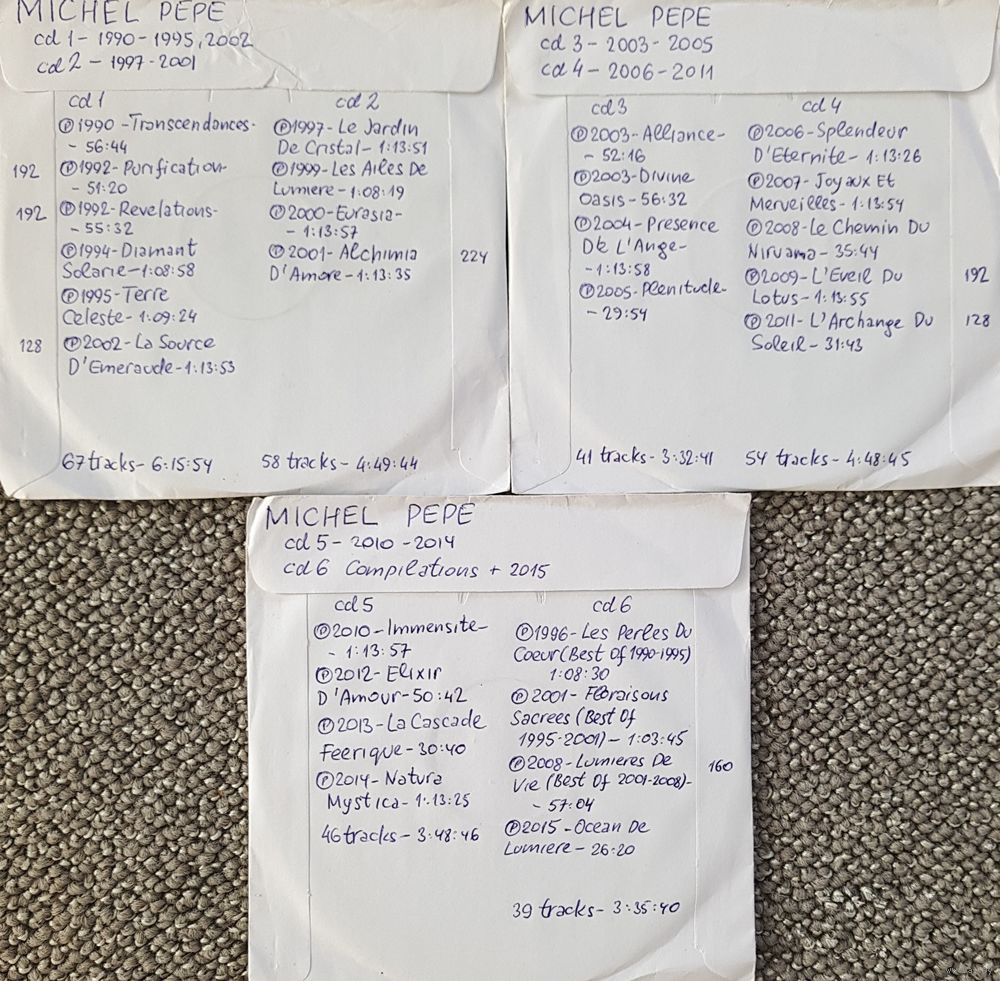 MICHEL PEPE
cd 1 - 1990 - 1995, 2002
cd 2 - 1997 - 2001
cd 1
Ⓟ1990 - Transcendances -
- 56:44
192 Ⓟ1992 - Purification -
- 51:20
192 Ⓟ1992 - Revelations -
- 55:32
Ⓟ1994 - Diamant
Solarie - 1:08:58
Ⓟ1995 - Terre
Celeste - 1:09:24
128 Ⓟ2002 - La Source
D'Emeraude - 1:13:53
67 tracks - 6:15:54
cd 2
Ⓟ1997 - Le Jardin
De Cristal - 1:13:51
Ⓟ1999 - Les Ailes De
Lumiere - 1:08:19
Ⓟ2000 - Eurasia -
- 1:13:57
Ⓟ2001 - Alchimia 224
D'Amore - 1:13:35
58 tracks - 4:49:44
MICHEL PEPE
cd 3 - 2003 - 2005
cd 4 - 2006 - 2011
cd 3
Ⓟ2003 - Alliance -
- 52:16
Ⓟ2003 - Divine
Oasis - 56:32
Ⓟ2004 - Presence
De L'Ange -
- 1:13:58
Ⓟ2005 - Plenitude -
- 29:54
41 tracks - 3:32:41
cd 4
Ⓟ2006 - Splendeur
D'Eternite - 1:13:26
Ⓟ2007 - Joyaux Et
Merveilles - 1:13:54
Ⓟ2008 - Le Chemin Du
Nirvana - 35:44
Ⓟ2009 - L'Eveil Du 192
Lotus - 1:13:55
Ⓟ2011 - L'Archange Du 128
Soleil - 31:43
54 tracks - 4:48:45
MICHEL PEPE
cd 5 - 2010 - 2014
cd 6 Compilations + 2015
cd 5
Ⓟ2010 - Immensite -
- 1:13:57
Ⓟ2012 - Elixir
D'Amour - 50:42
Ⓟ2013 - La Cascade
Feerique - 30:40
Ⓟ2014 - Natura
Mystica - 1:13:25
46 tracks - 3:48:46
cd 6
Ⓟ1996 - Les Perles Du
Coeur (Best Of 1990-1995)
1:08:30
Ⓟ2001 - Floraisons
Sacrees (Best Of
1995-2001) - 1:03:45
Ⓟ2008 - Lumieres De 160
Vie (Best Of 2001-2008) -
- 57:04
Ⓟ2015 - Ocean De
Lumiere - 26:20
39 tracks - 3:35:40